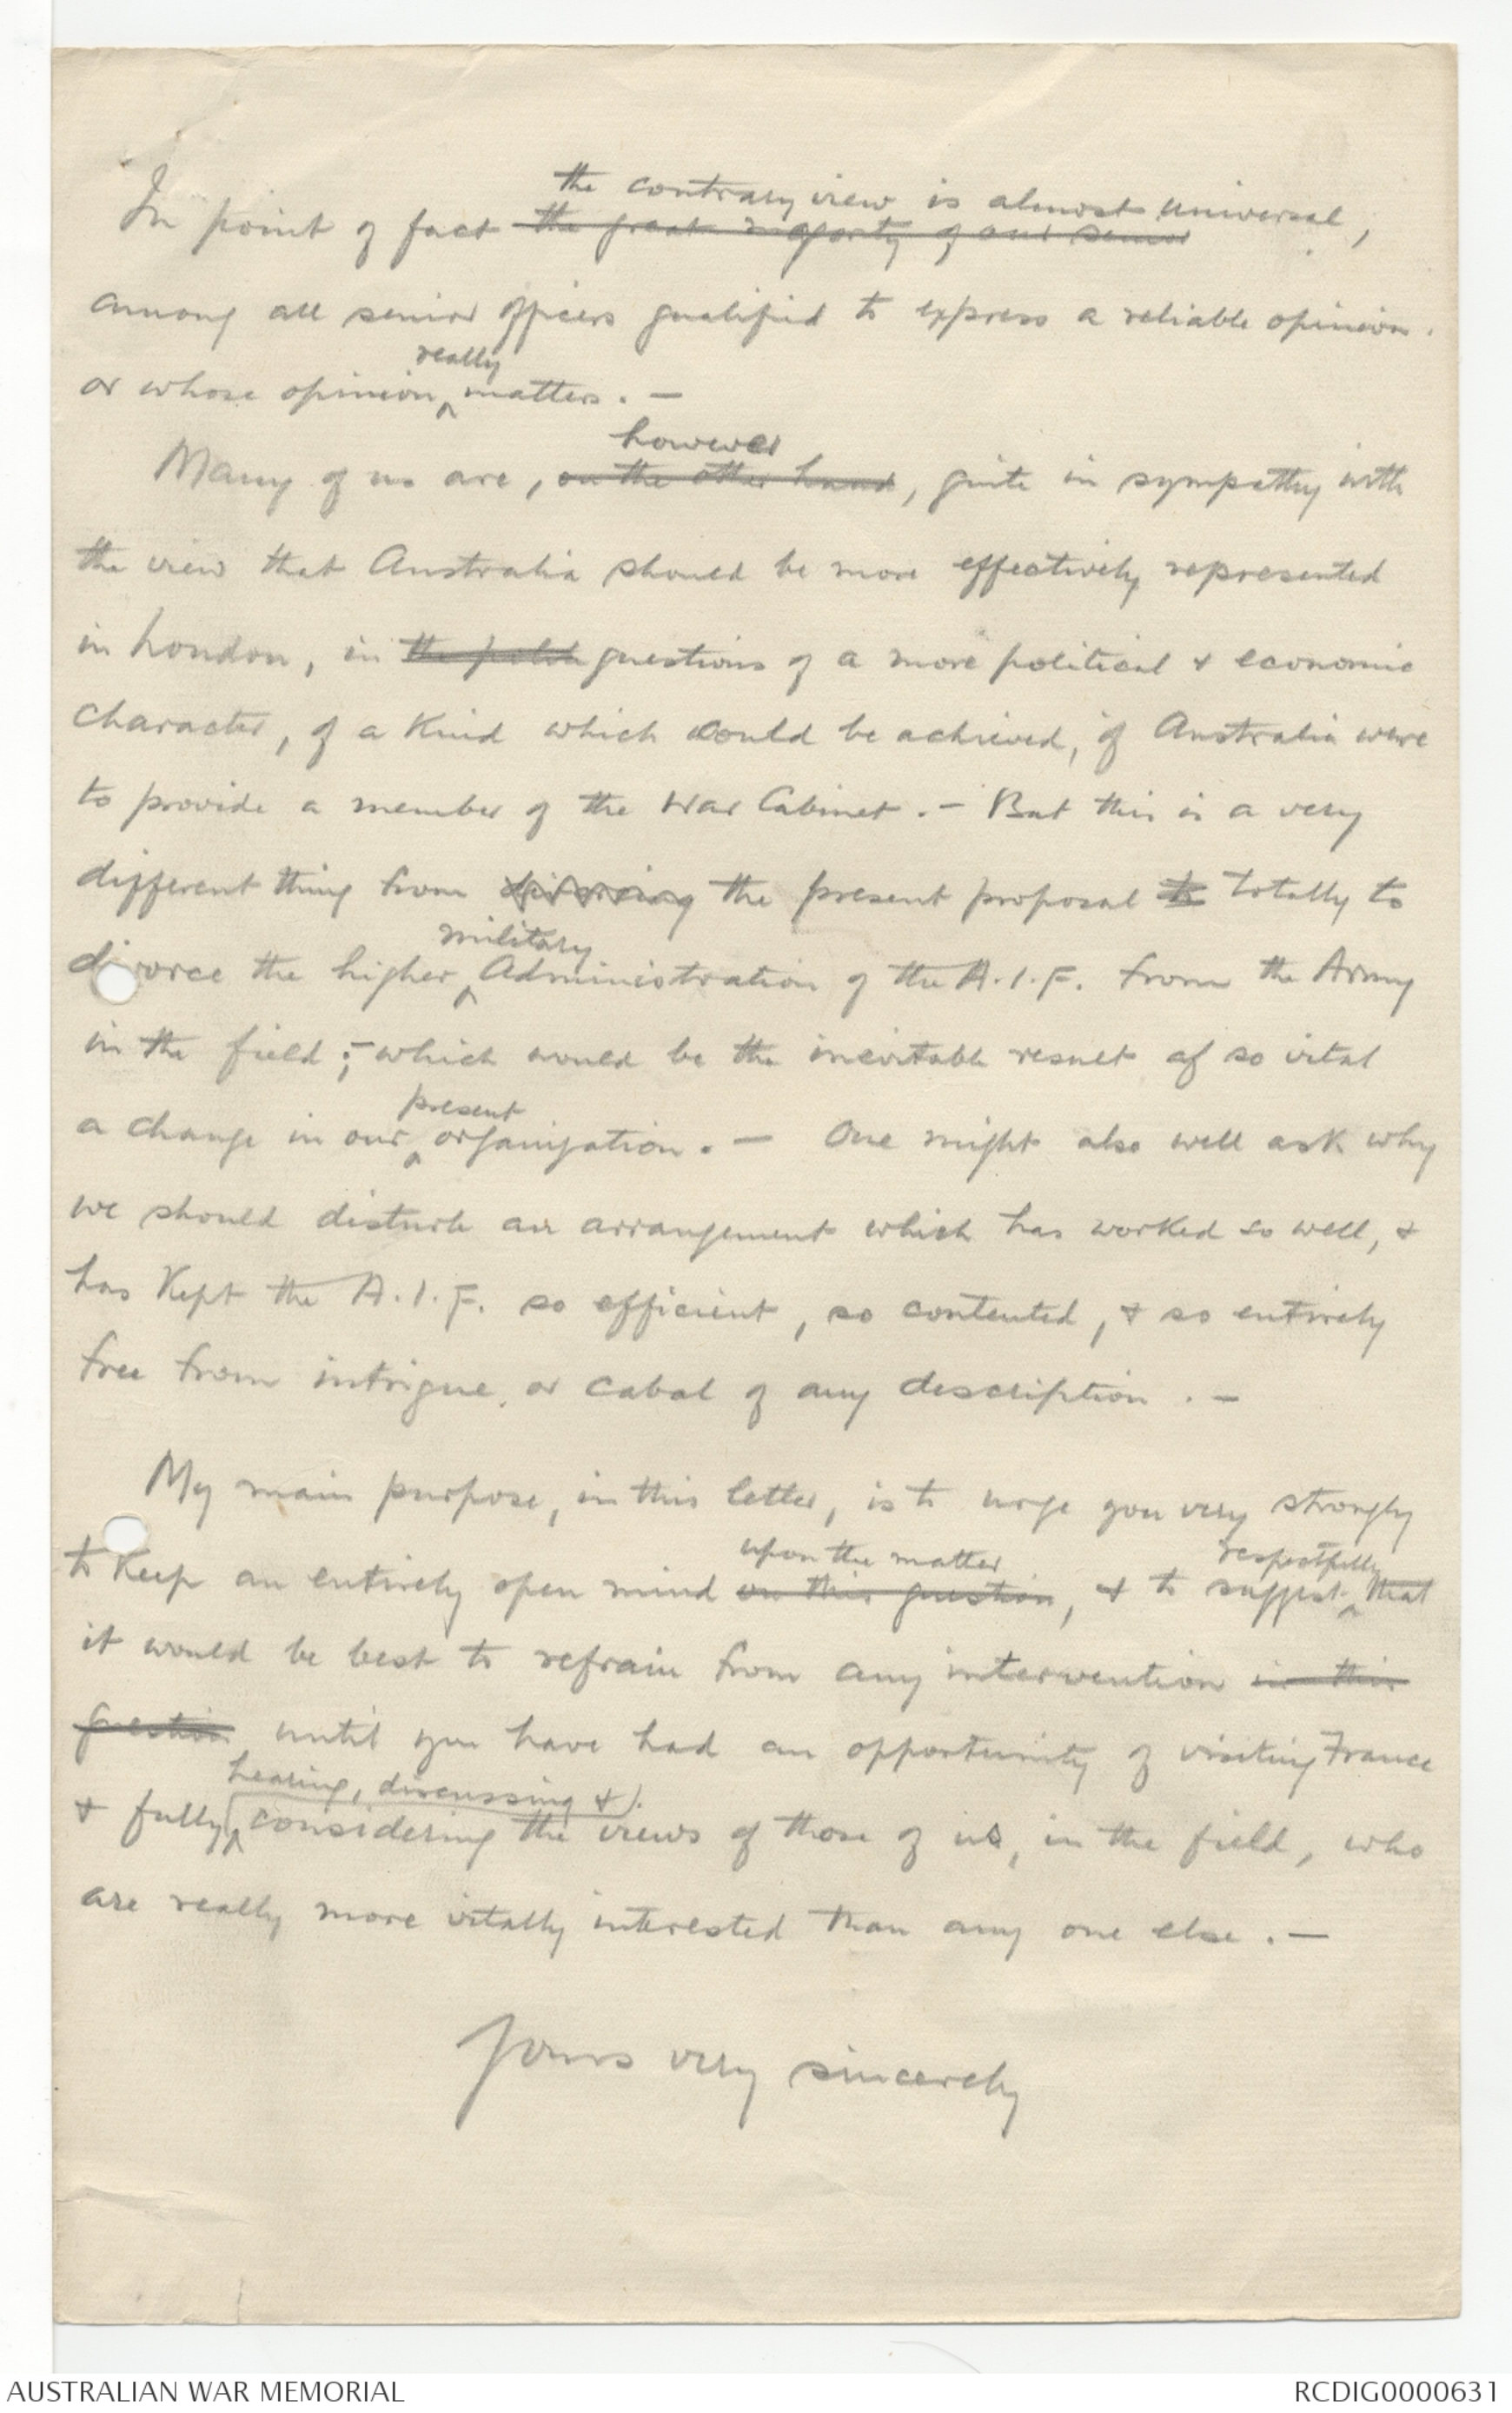 the contrary view is almost universal,
In point of fact the great majority of our senior
among all senior officers qualified to express a reliable opinion.
really
or whose opinion ^ matters. —
however
Many of us are, on the other hand, quite in sympathy with
the view that Australia should be more effectively represented
in London, in the polit questions of a more political & economic
character, of a kind which would be achieved, if Australia were
to provide a member of the War Cabinet. — But this is a very
different thing from divorcing the present proposal to totally to
military
divorce the higher ^ Administration of the A.I.F. from the Army
in the field; — which would be the inevitable result of so vital
present
a change in our ^ organization. — One might also well ask why
we should disturb an arrangement which has worked so well, &
has kept the A.I.F. so efficient, so contented, & so entirely
free from intrigue, or cabal of any description. —
My main purpose, in this letter, is to urge you very strongly
upon the matter respectfully
to keep an entirely open mind on this question, & to suggest ^ that
it would be best to refrain from any intervention in this
question until you have had an opportunity of visiting France
hearing, discussing &
& fully ^ considering the views of those of us, in the field, who
are really more vitally interested than any one else. —
Yours very sincerely
AUSTRALIAN WAR MEMORIAL
RCDIG0000631